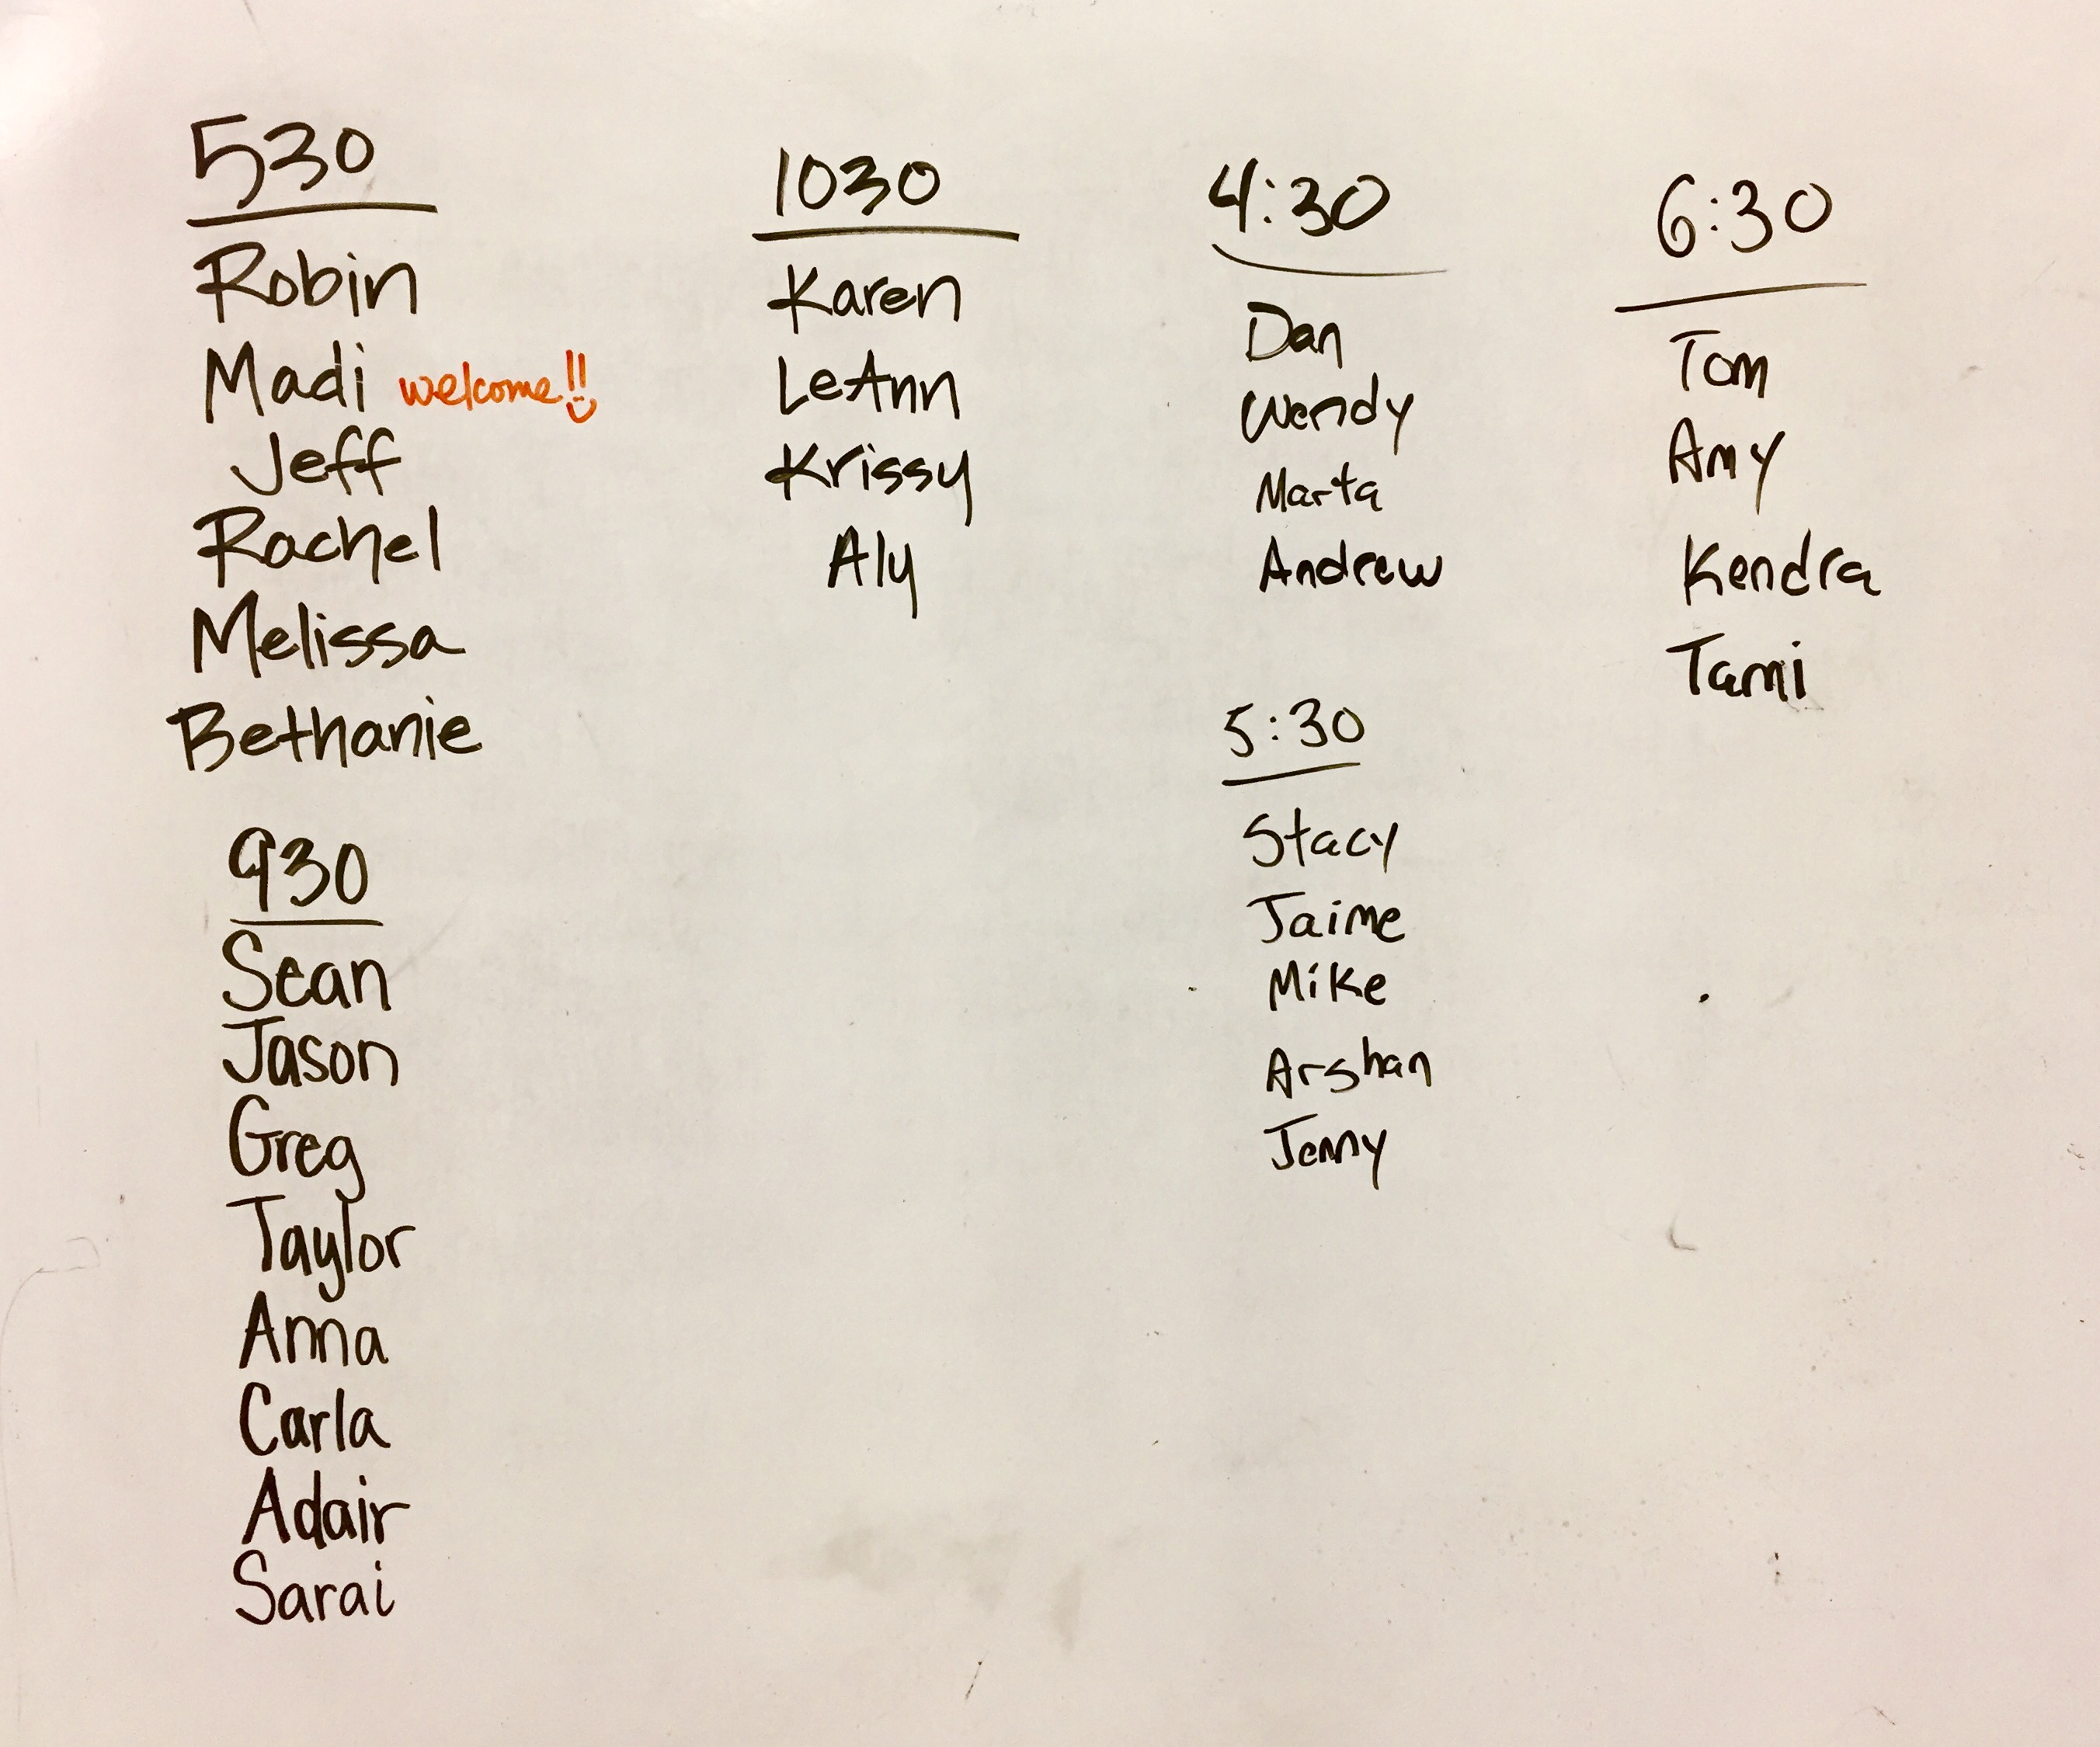 530
Robin
Madi welcome!!
Jeff
Rachel
Melissa
Bethanie
930
Sean
Jason
Greg
Taylor
Anna
Carla
Adair
Sarai
1030
Karen
LeAnn
Krissy
Aly
4:30
Dan
Wendy
Marta
Andrew
5:30
Stacy
Jaime
Mike
Arshan
Jenny
6:30
Tom
Amy
Kendra
Tami